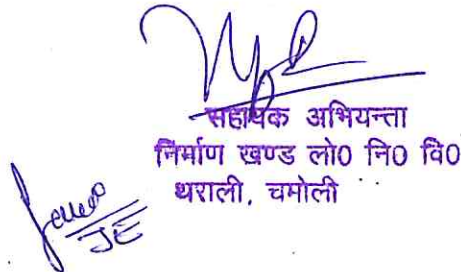 सहायक अभियन्ता
निर्माण खण्ड लो0 नि0 वि0
थराली, चमोली
JE